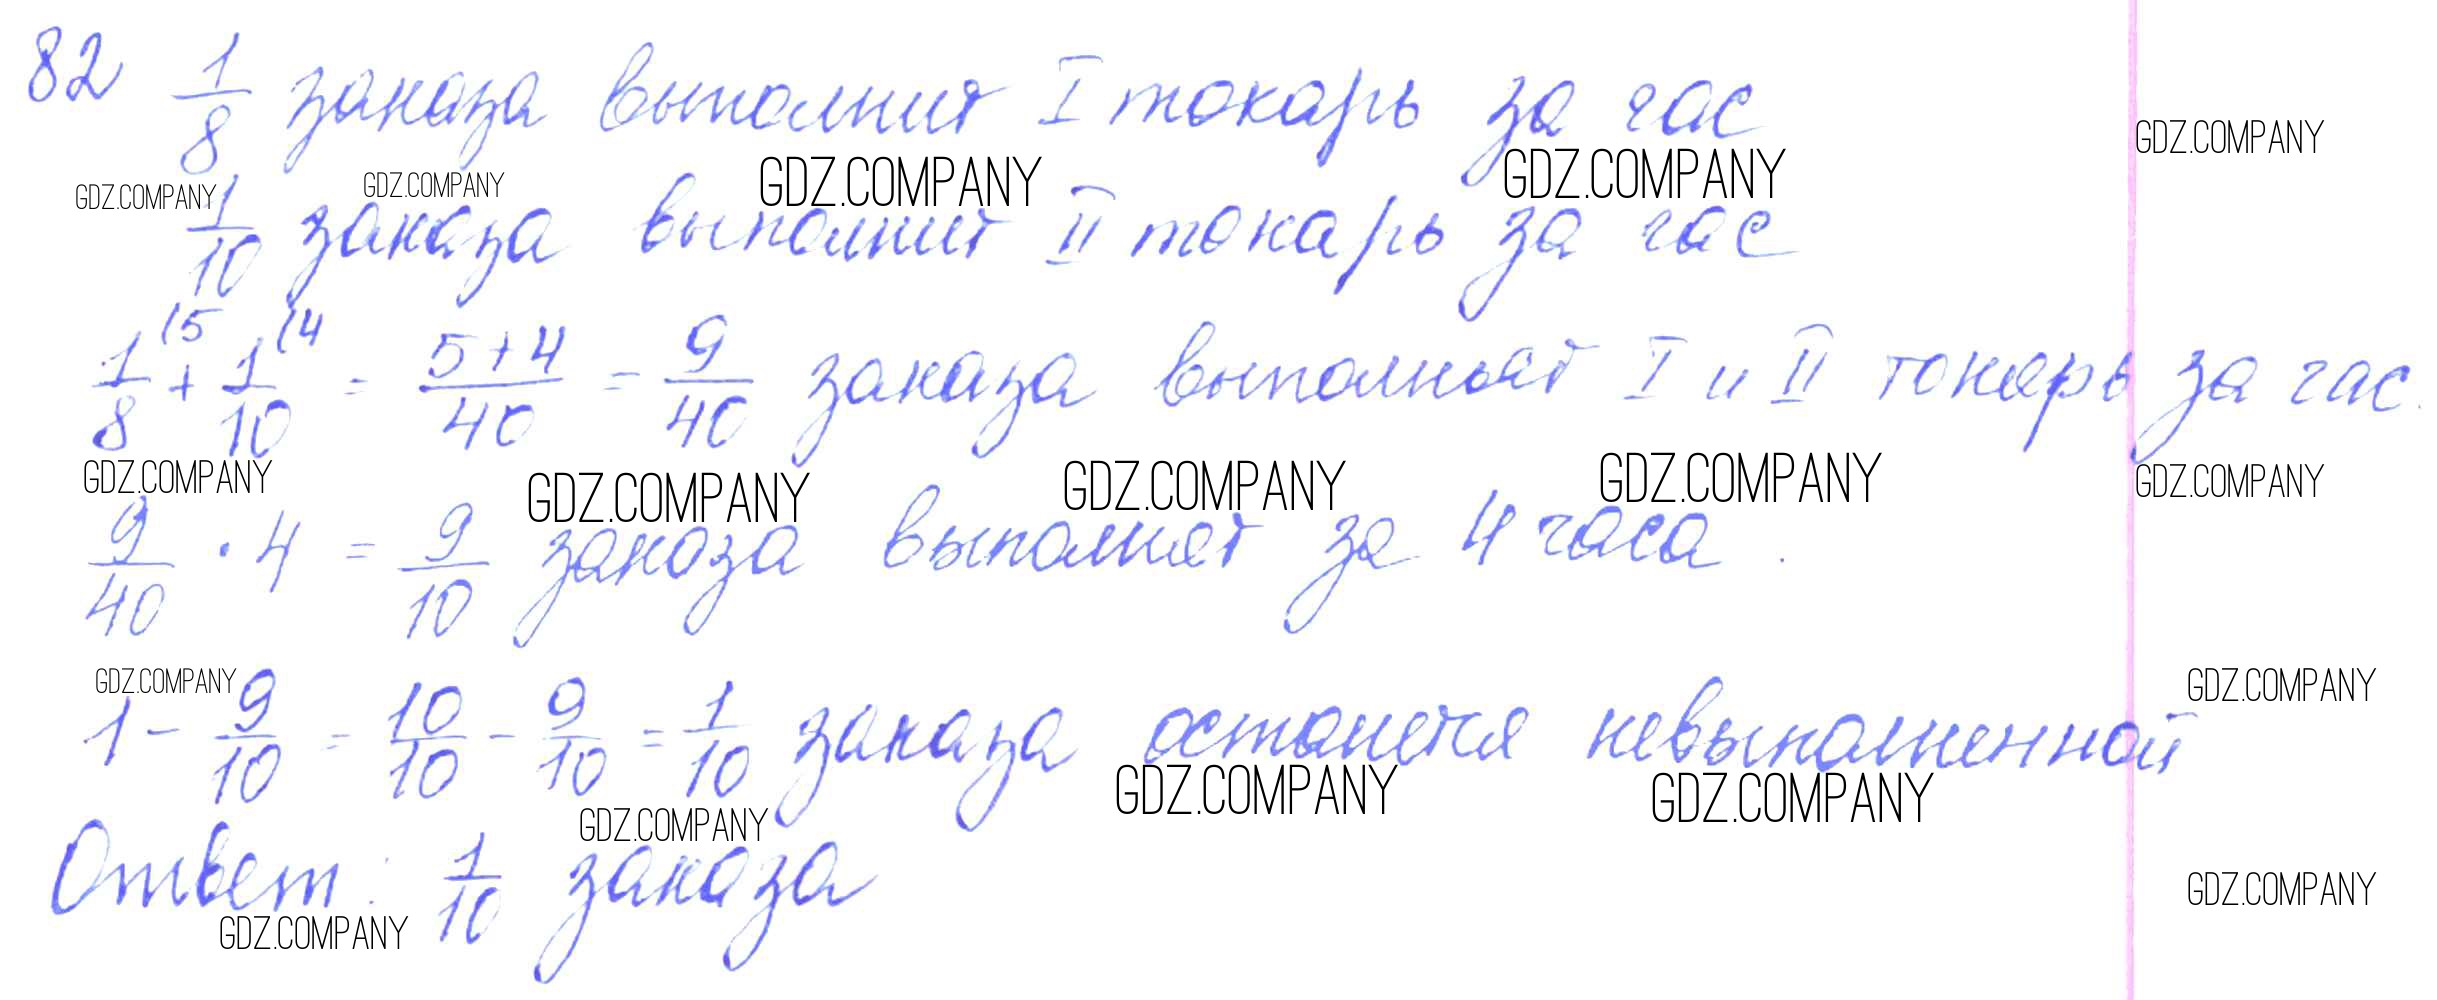 82 1/8 заказа выполнит I токарь за час
GDZ.COMPANY
GDZ.COMPANY GDZ.COMPANY GDZ.COMPANY GDZ.COMPANY
1/10 заказа выполнит II токарь за час
1/8 (5 + 1/10 (4 = 5+4/40 = 9/40 заказа выполнят I и II токарь за час.
GDZ.COMPANY GDZ.COMPANY GDZ.COMPANY GDZ.COMPANY GDZ.COMPANY
9/40 · 4 = 9/10 заказа выполнят за 4 часа.
GDZ.COMPANY GDZ.COMPANY
1 - 9/10 = 10/10 - 9/10 = 1/10 заказа останется невыполненной
GDZ.COMPANY GDZ.COMPANY GDZ.COMPANY
Ответ: 1/10 заказа
GDZ.COMPANY
GDZ.COMPANY